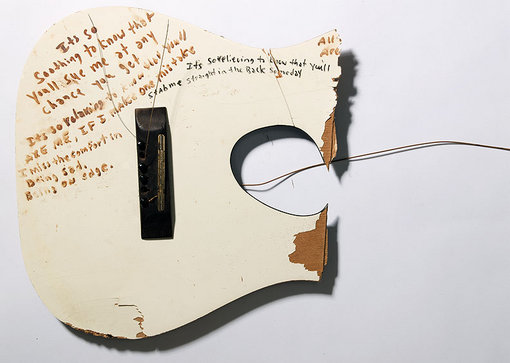 Its so
Soothing to know that
You'll sue me at any
Chance you get
Its so relaxing to know you'll
ARE ME, IF I make one mistake
I miss the comfort in
Being sad.
Being on edge.
Its so relieving to know that you'll
Stab me straight in the Back Someday
All
Are